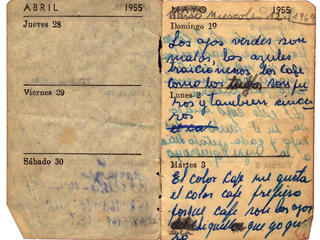 ABRIL 1955
Jueves 28
Viernes 29
Sábado 30
MAYO 1955
Marzo Miercoles 12, 1969
Domingo 1º
Los ojos verdes son
malos, los azules
traicioneros, los cafe
como los tuyos son pu
Lunes 2
ros y tambien since
ros
Martes 3
El color cafe me gusta
el color cafe prefiero
porque cafe son los ojos
chiquillo que yo